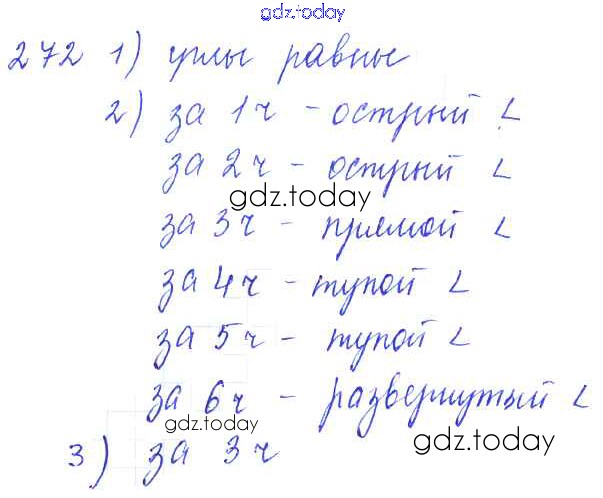 gdz.today
272 1) углы равные
2) за 1ч - острый ∠
за 2ч - острый ∠
gdz.today
за 3ч - прямой ∠
за 4ч - тупой ∠
за 5ч - тупой ∠
за 6ч - развернутый ∠
gdz.today
gdz.today
3) за 3ч